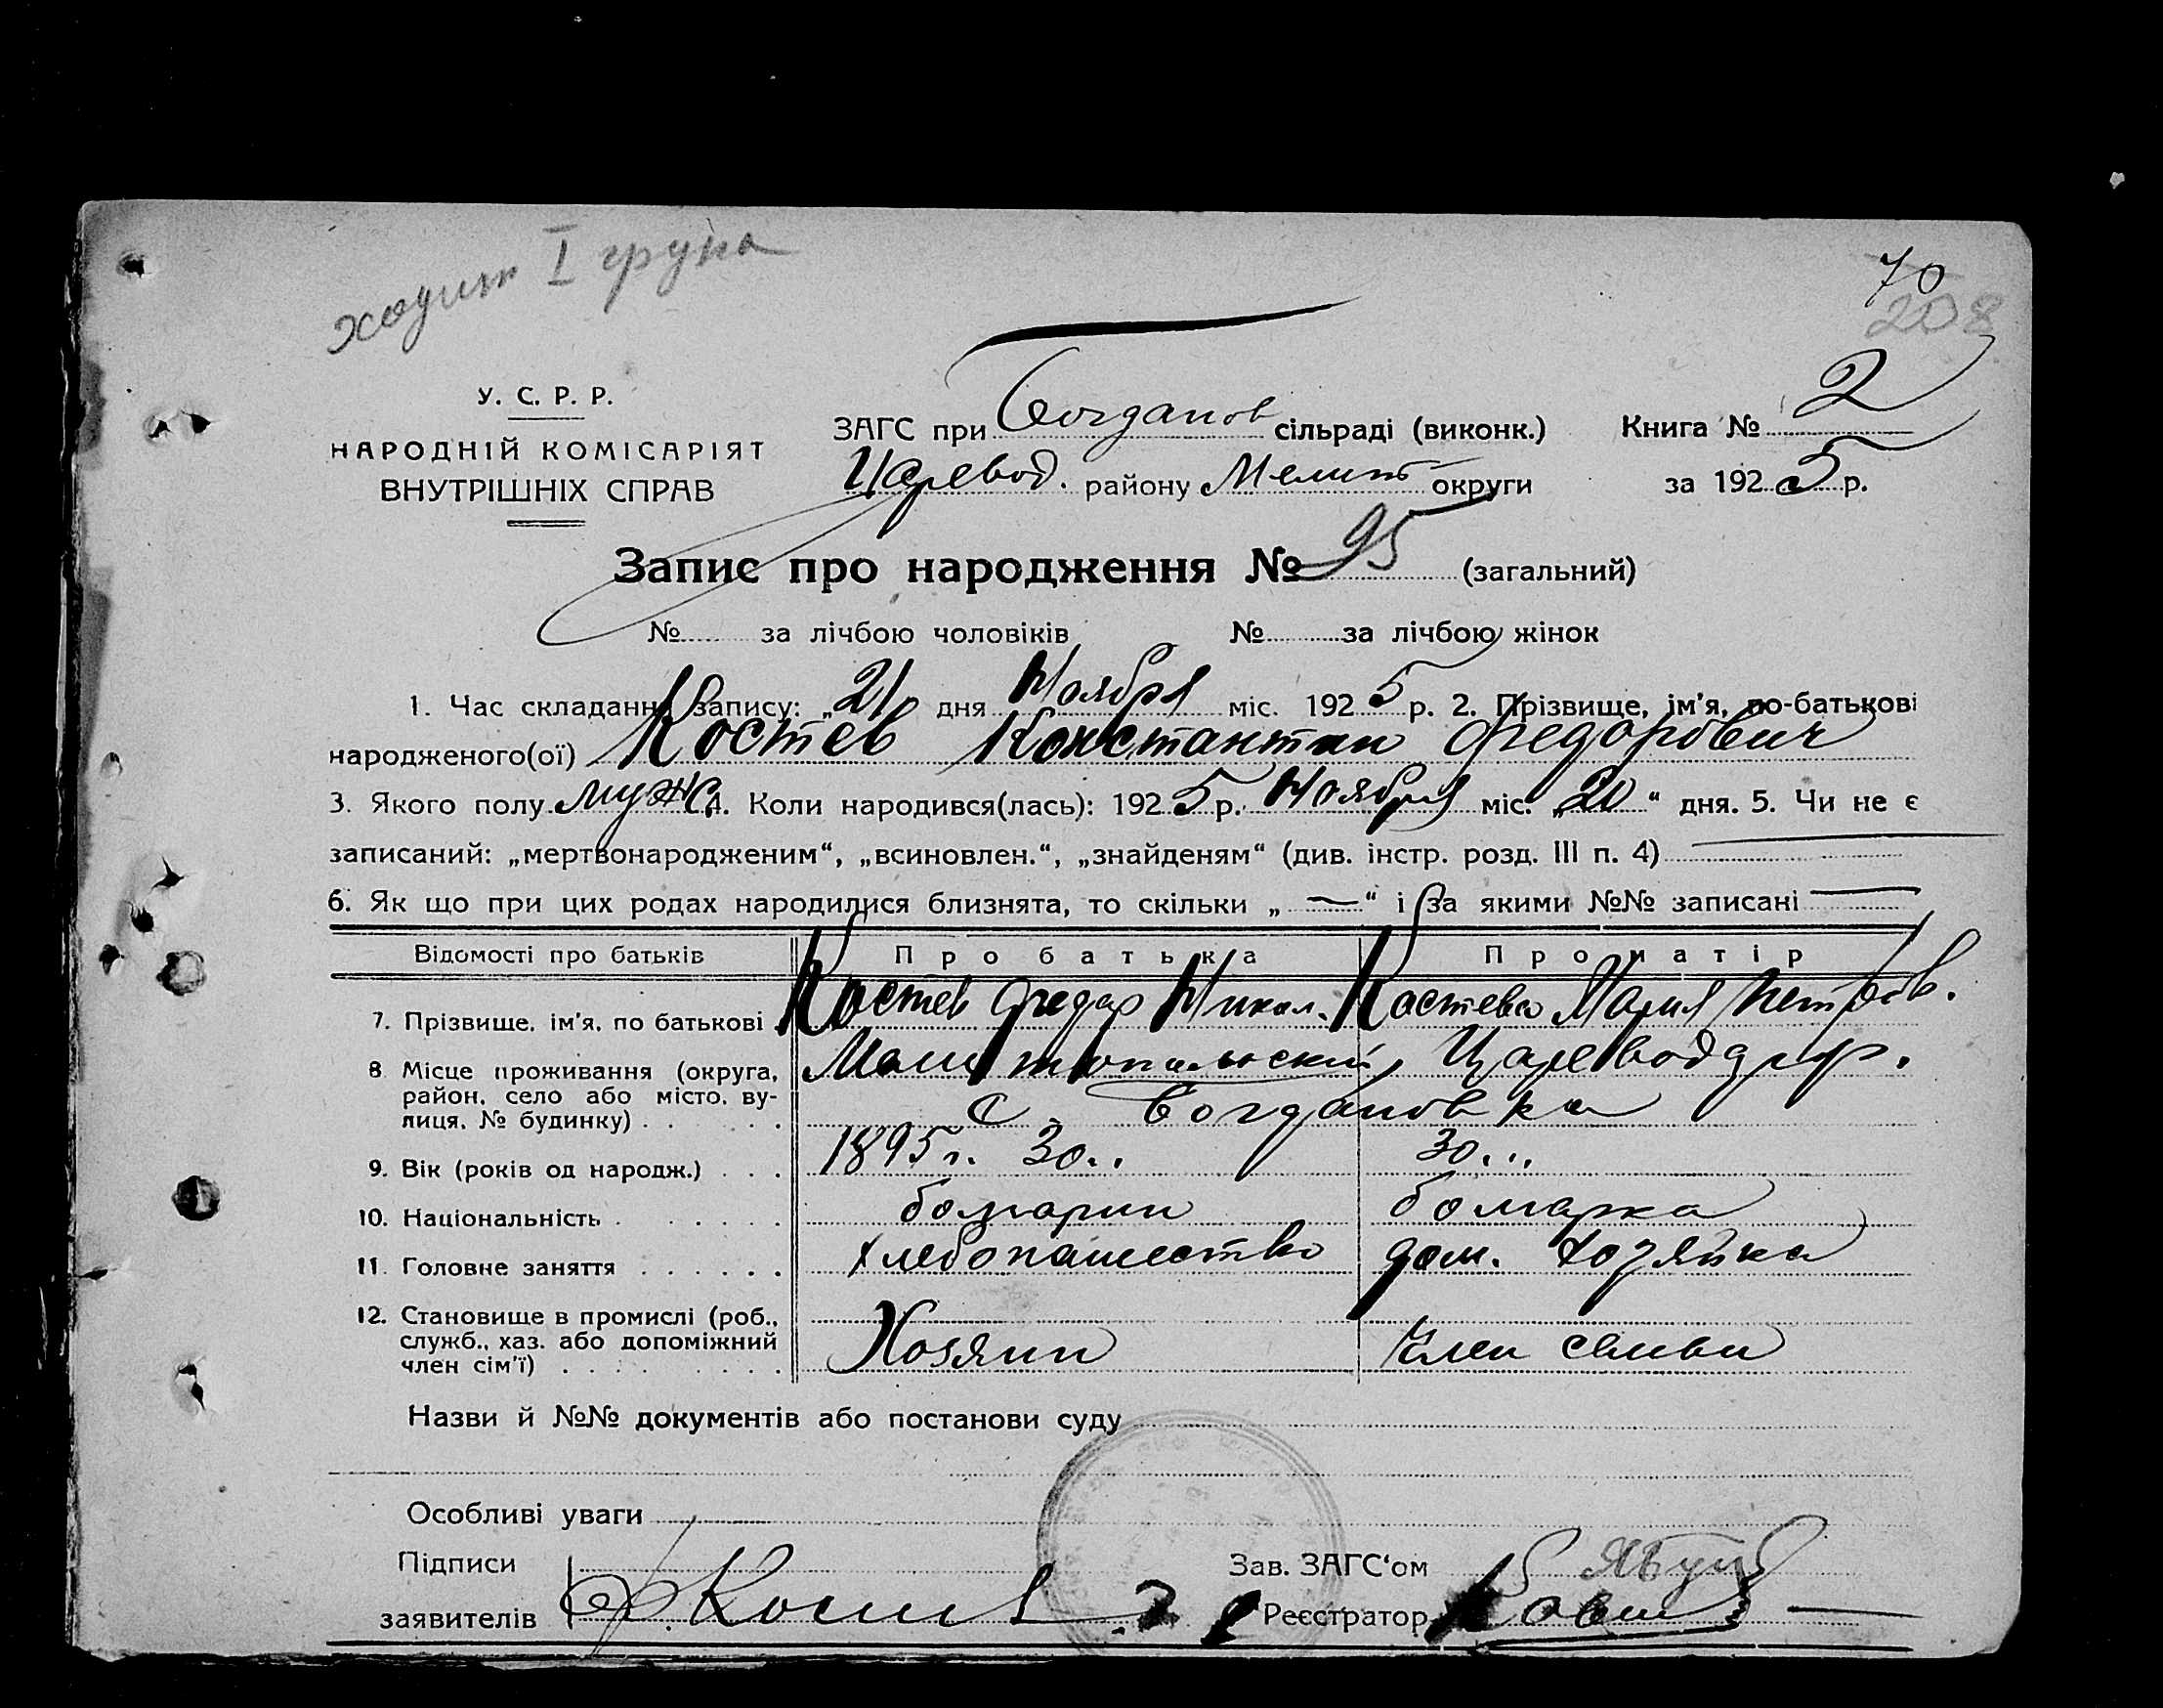 ходит I група
70
208
У. С. Р. Р.
НАРОДНІЙ КОМІСАРІЯТ
ВНУТРІШНІХ СПРАВ
ЗАГС при Богданов сільраді (виконк.) Книга № 2
Царевод. району Мелит округи за 1925 р.
Запис про народження № 95 (загальний)
№ за лічбою чоловіків № за лічбою жінок
1. Час складання запису: „21" дня Ноября міс. 1925 р. 2. Прізвище, ім'я, по-батькові
народженого(ої) Костев Константин Федорович
3. Якого полу муж 4. Коли народився(лась): 1925 р. Ноября міс. „20" дня. 5. Чи не є
записаний: „мертвонародженим", „всиновлен.", „знайденям" (див. інстр. розд. III п. 4) —
6. Як що при цих родах народилися близнята, то скільки „—" і за якими №№ записані —
Відомості про батьків Про батька Про матір
7. Прізвище, ім'я, по батькові Костев Федор Никол. Костева Мария Петров.
8. Місце проживання (округа, район, село або місто, вулиця, № будинку) . . . . Мелитопольский, Царевод р.
с. Богдановка
9. Вік (років од народж.) . . . 1895 г. 30.. 30...
10. Національність . . . . . . болгарин болгарка
11. Головне заняття . . . . . . хлебопашество дом. хозяйка
12. Становище в промислі (роб., служб., хаз. або допоміжний член сім'ї) . . . . . . Хозяин Член семьи
Назви й №№ документів або постанови суду
Особливі уваги
Підписи Зав. ЗАГС'ом
заявителів Ф. Костев Реєстратор